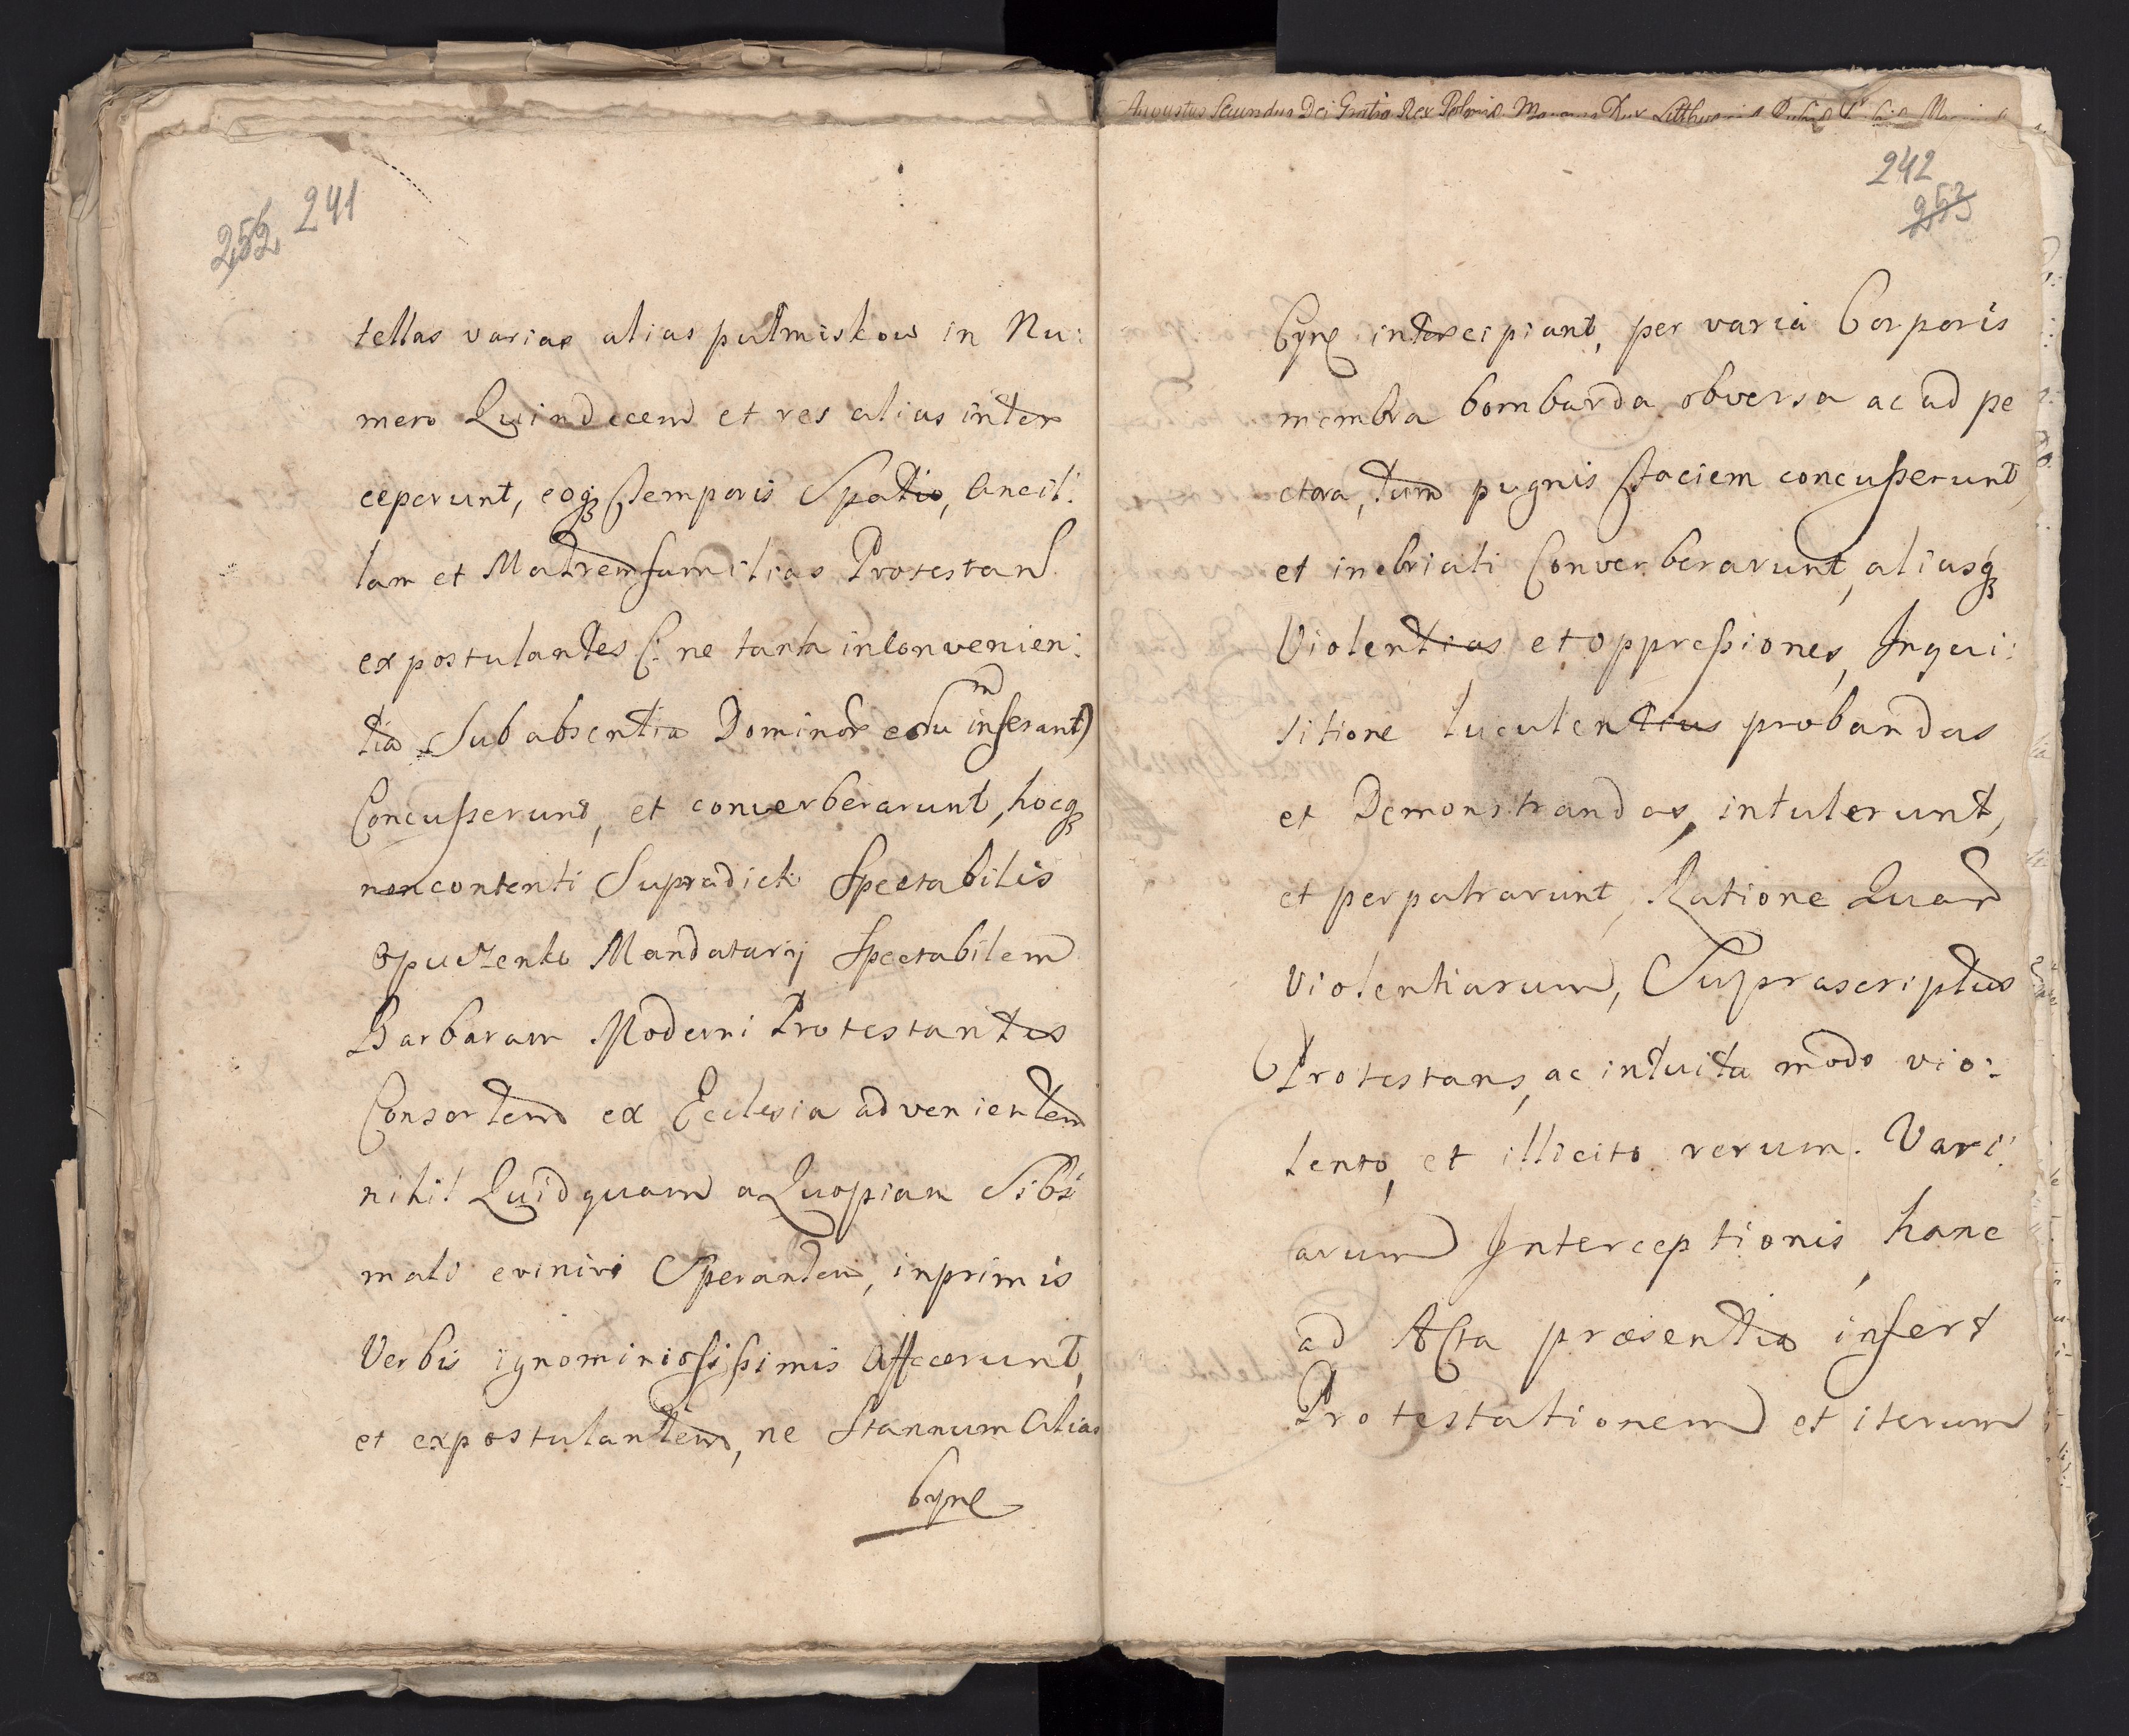 252 241
tellas varias alias pułmiskow in Nu:
mero Quindecem et res alias inter
ceperunt, eoq; temporis Spatio, Ancil:
lam et Matremfamilias Protestan
expostulantes (: ne tanta inconvenien:
tia Sub absentia Dominor eorum inferant)
Concusserunt, et converberarunt, hocq;
non contenti Supradicti Spectabilis
Opuczenko Mandatarij Spectabilem
Barbaram Moderni Protestantis
Consortem ex Ecclesia advenientem
nihil Quidquam a Quopiam Sibi
mali eviniri Sperantem, inprimis
Verbis ignominiosissimis Affecerunt,
et expostulantem, ne Stannum Alias
Cyne
Augustus Secundus Dei Gratia Rex Poloniæ Magnus Dux Litthuaniæ
242
253
Cynę intercipiant, per varia Corporis
membra bombarda obversa ac ad pe
ctora, tum pugnis faciem concusserunt,
et inebriati Converberarunt, aliasq;
Violentias et oppressiones, Inqui:
sitione luculentius probandas
et Demonstrandas, intulerunt,
et perpatrarunt, Ratione Quar
Violentiarum, Suprascriptus
Protestans, ac intuitu modo vio:
lento, et illicito rerum. Vari:
arum Interceptionis, hanc
ad Acta præsentia infert
Protestationem et iterum